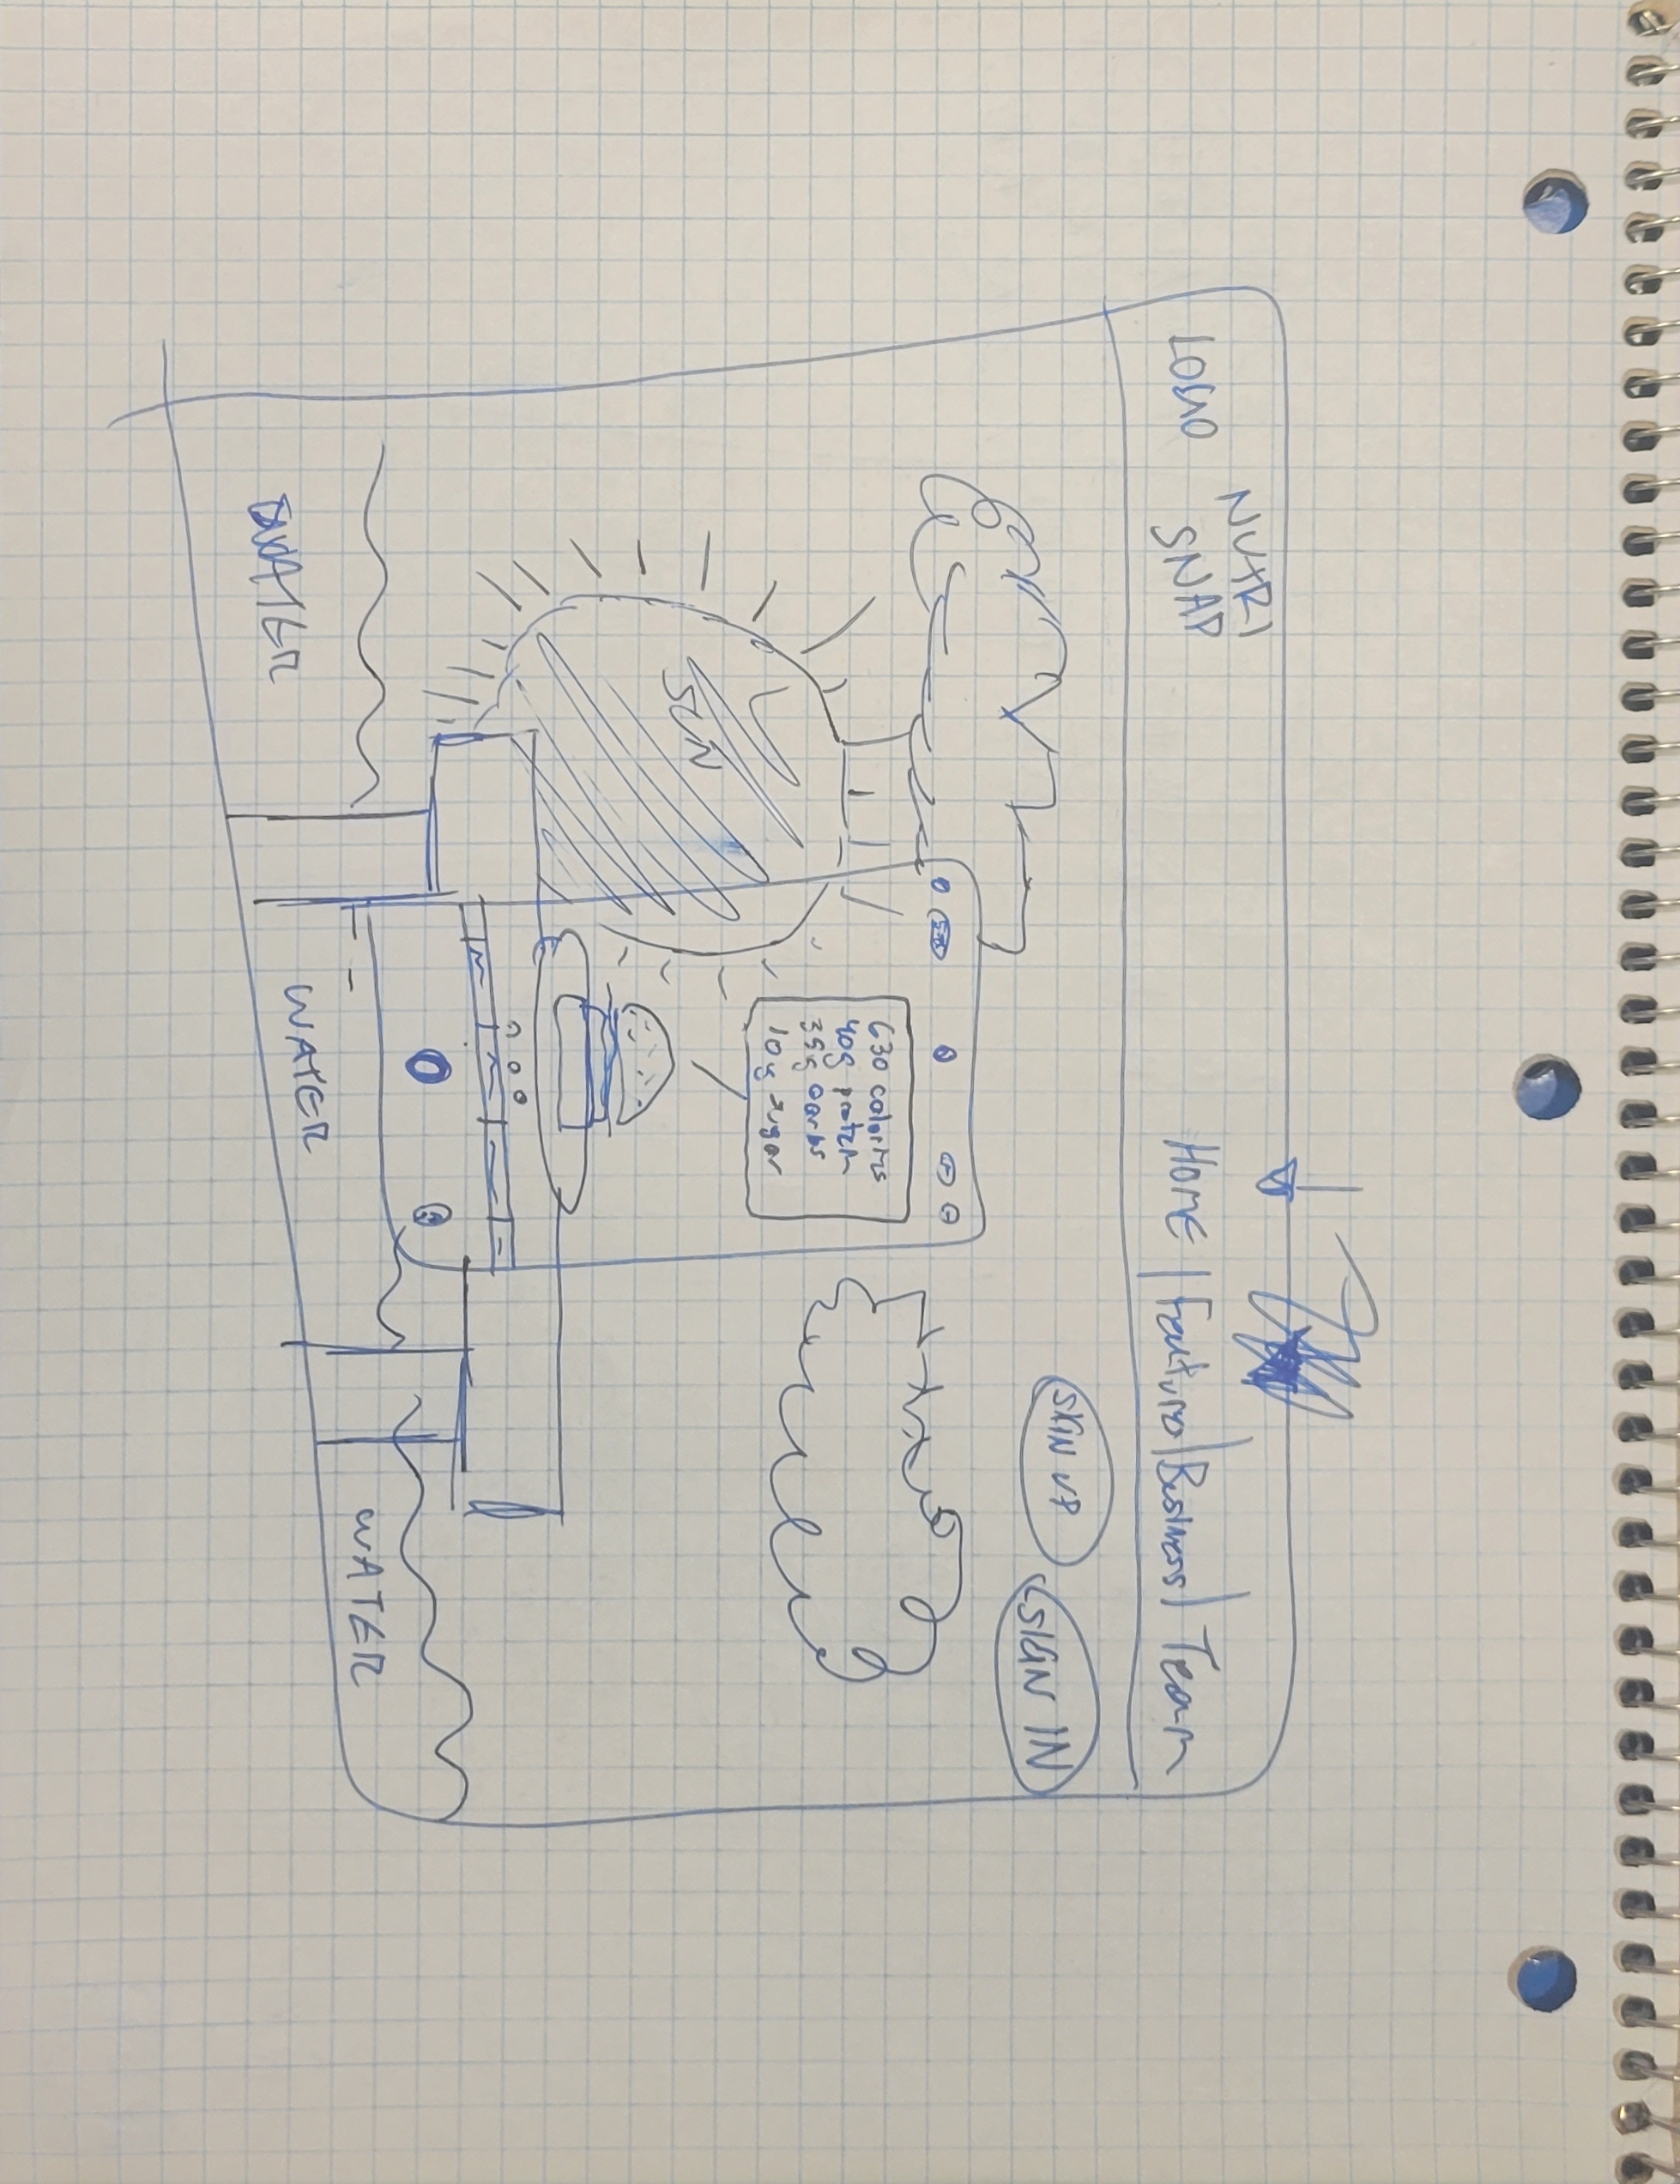 LOGO
NUTRI
SNAP
HOME | Features | Business | Team
SIGN UP
SIGN IN
630 calories
40g protein
35g carbs
10g sugar
SUN
WATER
WATER
WATER